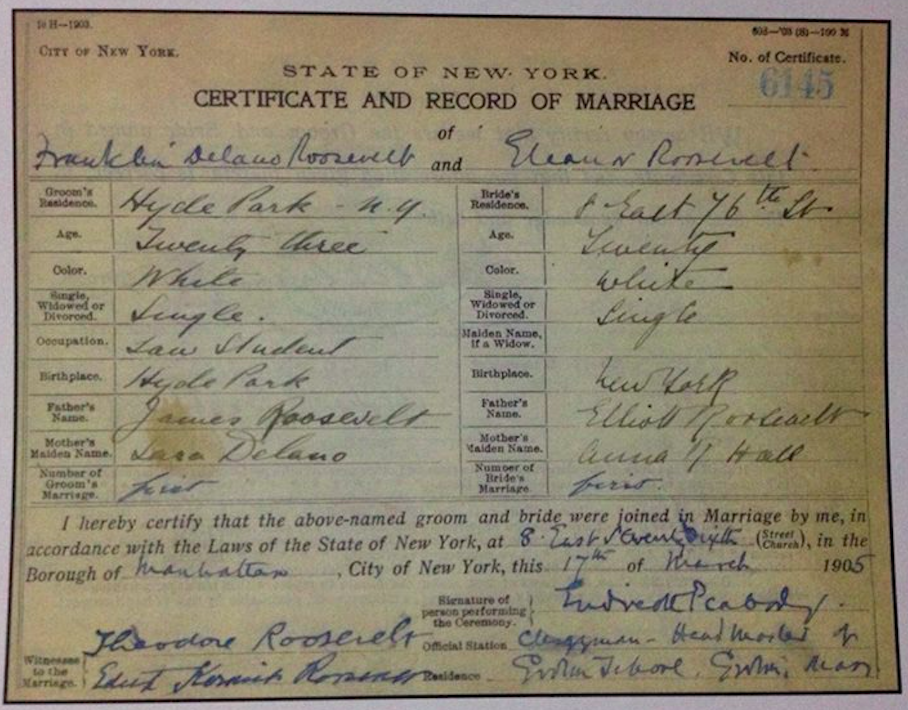 10 H—1903.
603—'05 (S)—100 M
CITY OF NEW YORK.
No. of Certificate.
6145
STATE OF NEW YORK.
CERTIFICATE AND RECORD OF MARRIAGE
of
Franklin Delano Roosevelt and Eleanor Roosevelt
Groom's Residence. Hyde Park - N.Y. Bride's Residence. 8 East 76th St
Age. Twenty three Age. Twenty
Color. White Color. White
Single, Widowed or Divorced. Single. Single, Widowed or Divorced. Single
Occupation. Law Student Maiden Name, if a Widow.
Birthplace. Hyde Park Birthplace. New York
Father's Name. James Roosevelt Father's Name. Elliott Roosevelt
Mother's Maiden Name. Sara Delano Mother's Maiden Name. Anna R Hall
Number of Groom's Marriage. first Number of Bride's Marriage. first.
I hereby certify that the above-named groom and bride were joined in Marriage by me, in
accordance with the Laws of the State of New York, at 8 East Seventy Sixth (Street Church), in the
Borough of Manhattan, City of New York, this 17th of March 1905
Signature of person performing the Ceremony. Endicott Peabody.
Theodore Roosevelt Official Station Clergyman - Head Master of
Witnesses to the Marriage. Edith Kermit Roosevelt Residence Groton School, Groton, Mass.